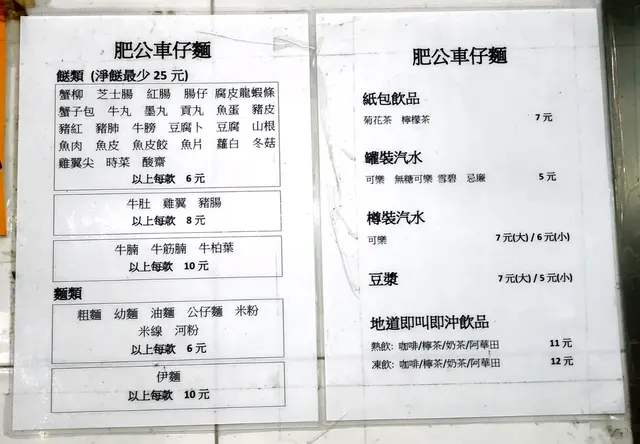 肥公車仔麵
餸類 (淨餸最少 25 元)
蟹柳 芝士腸 紅腸 腸仔 腐皮龍蝦條
蟹子包 牛丸 墨丸 貢丸 魚蛋 豬皮
豬紅 豬肺 牛膀 豆腐卜 豆腐 山根
魚肉 魚皮 魚皮餃 魚片 蘿白 冬菇
雞翼尖 時菜 酸齋
以上每款 6 元
牛肚 雞翼 豬腸
以上每款 8 元
牛腩 牛筋腩 牛柏葉
以上每款 10 元
麵類
粗麵 幼麵 油麵 公仔麵 米粉
米線 河粉
以上每款 6 元
伊麵
以上每款 10 元
肥公車仔麵
紙包飲品
菊花茶 檸檬茶 7 元
罐裝汽水
可樂 無糖可樂 雪碧 忌廉 5 元
樽裝汽水
可樂 7 元(大) / 6 元(小)
豆漿 7 元(大) / 5 元(小)
地道即叫即沖飲品
熱飲: 咖啡/檸茶/奶茶/阿華田 11 元
凍飲: 咖啡/檸茶/奶茶/阿華田 12 元